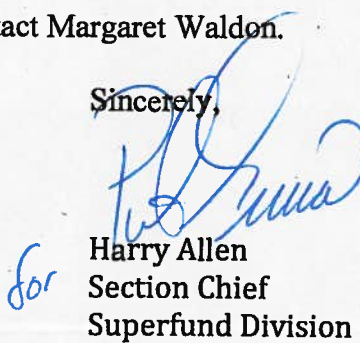 tact Margaret Waldon.
Sincerely,
for Harry Allen
Section Chief
Superfund Division